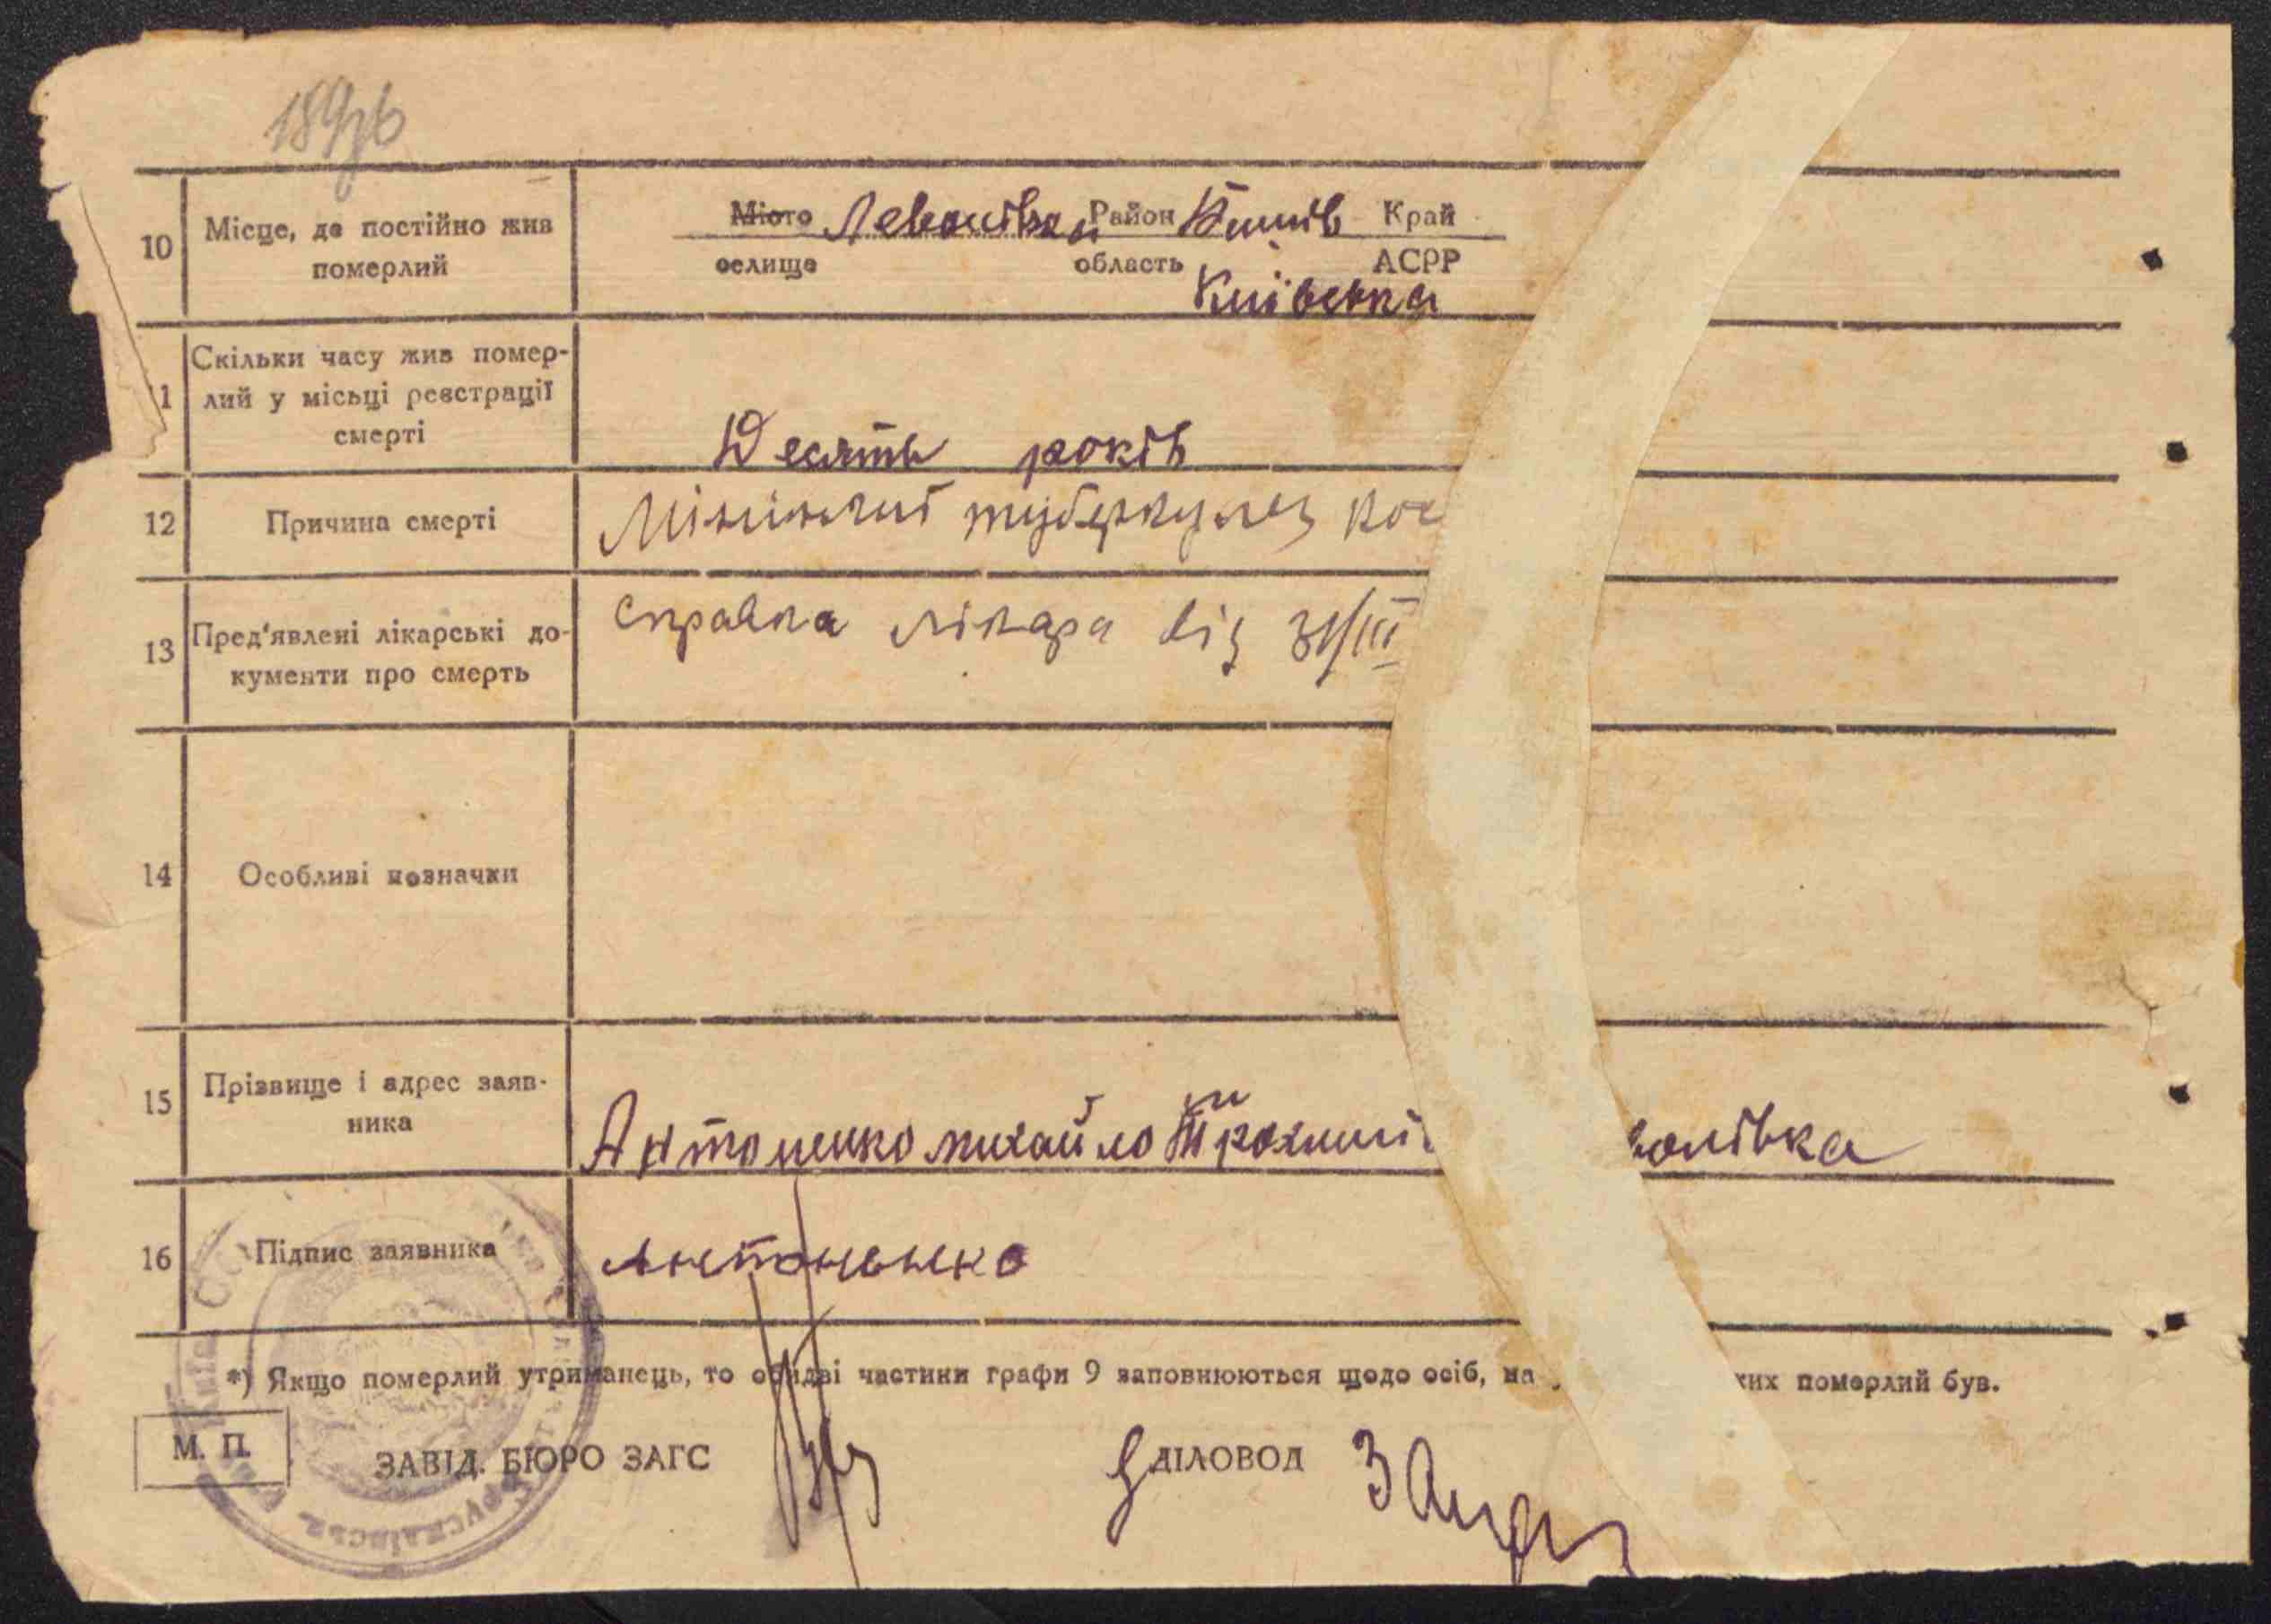 10 Місце, де постійно жив померлий
Місто Левонівка Район Київ Край
оселище область АСРР
Київська
11 Скільки часу жив помер-
лий у місьці реєстрації
смерті
Десять років
12 Причина смерті
туберкулез кос
13 Пред'явлені лікарські до-
кументи про смерть
справка лікара від 31/III
14 Особливі позначки
15 Прізвище і адрес заяв-
ника
Антоненко михайло онівка
16 Підпис заявника
Антоненко
*) Якщо померлий утриманець, то обидві частини графи 9 заповнюються щодо осіб, на ких померлий був.
М. П.
ЗАВІД. БЮРО ЗАГС ДІЛОВОД